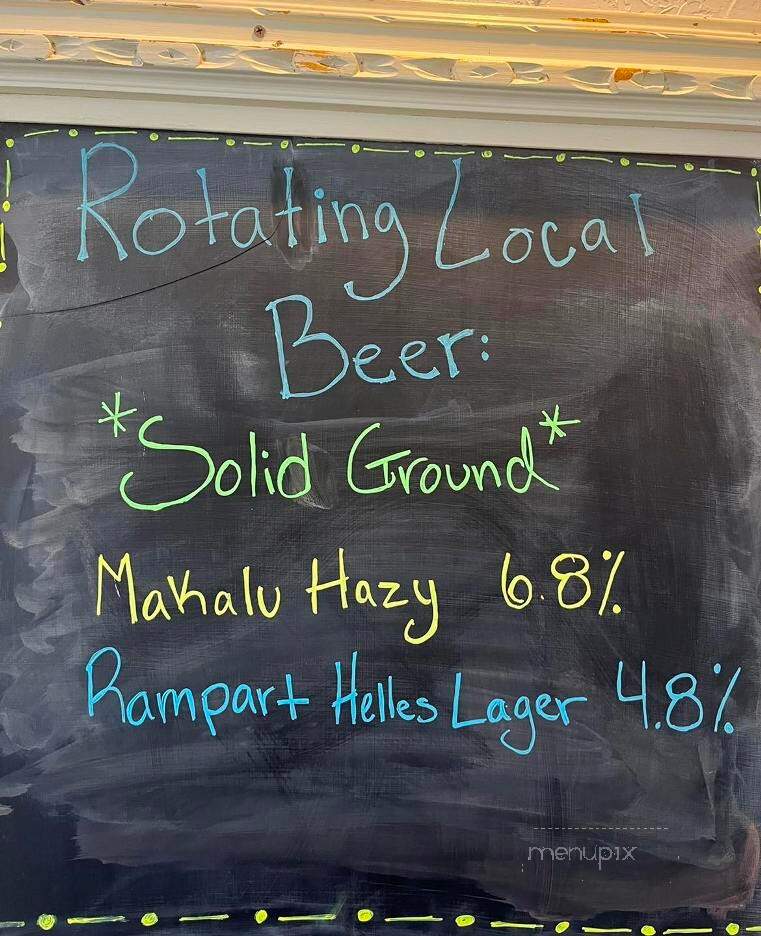 Rotating Local
Beer:
*Solid Ground*
Makalu Hazy 6.8%
Rampart Helles Lager 4.8%
menupix